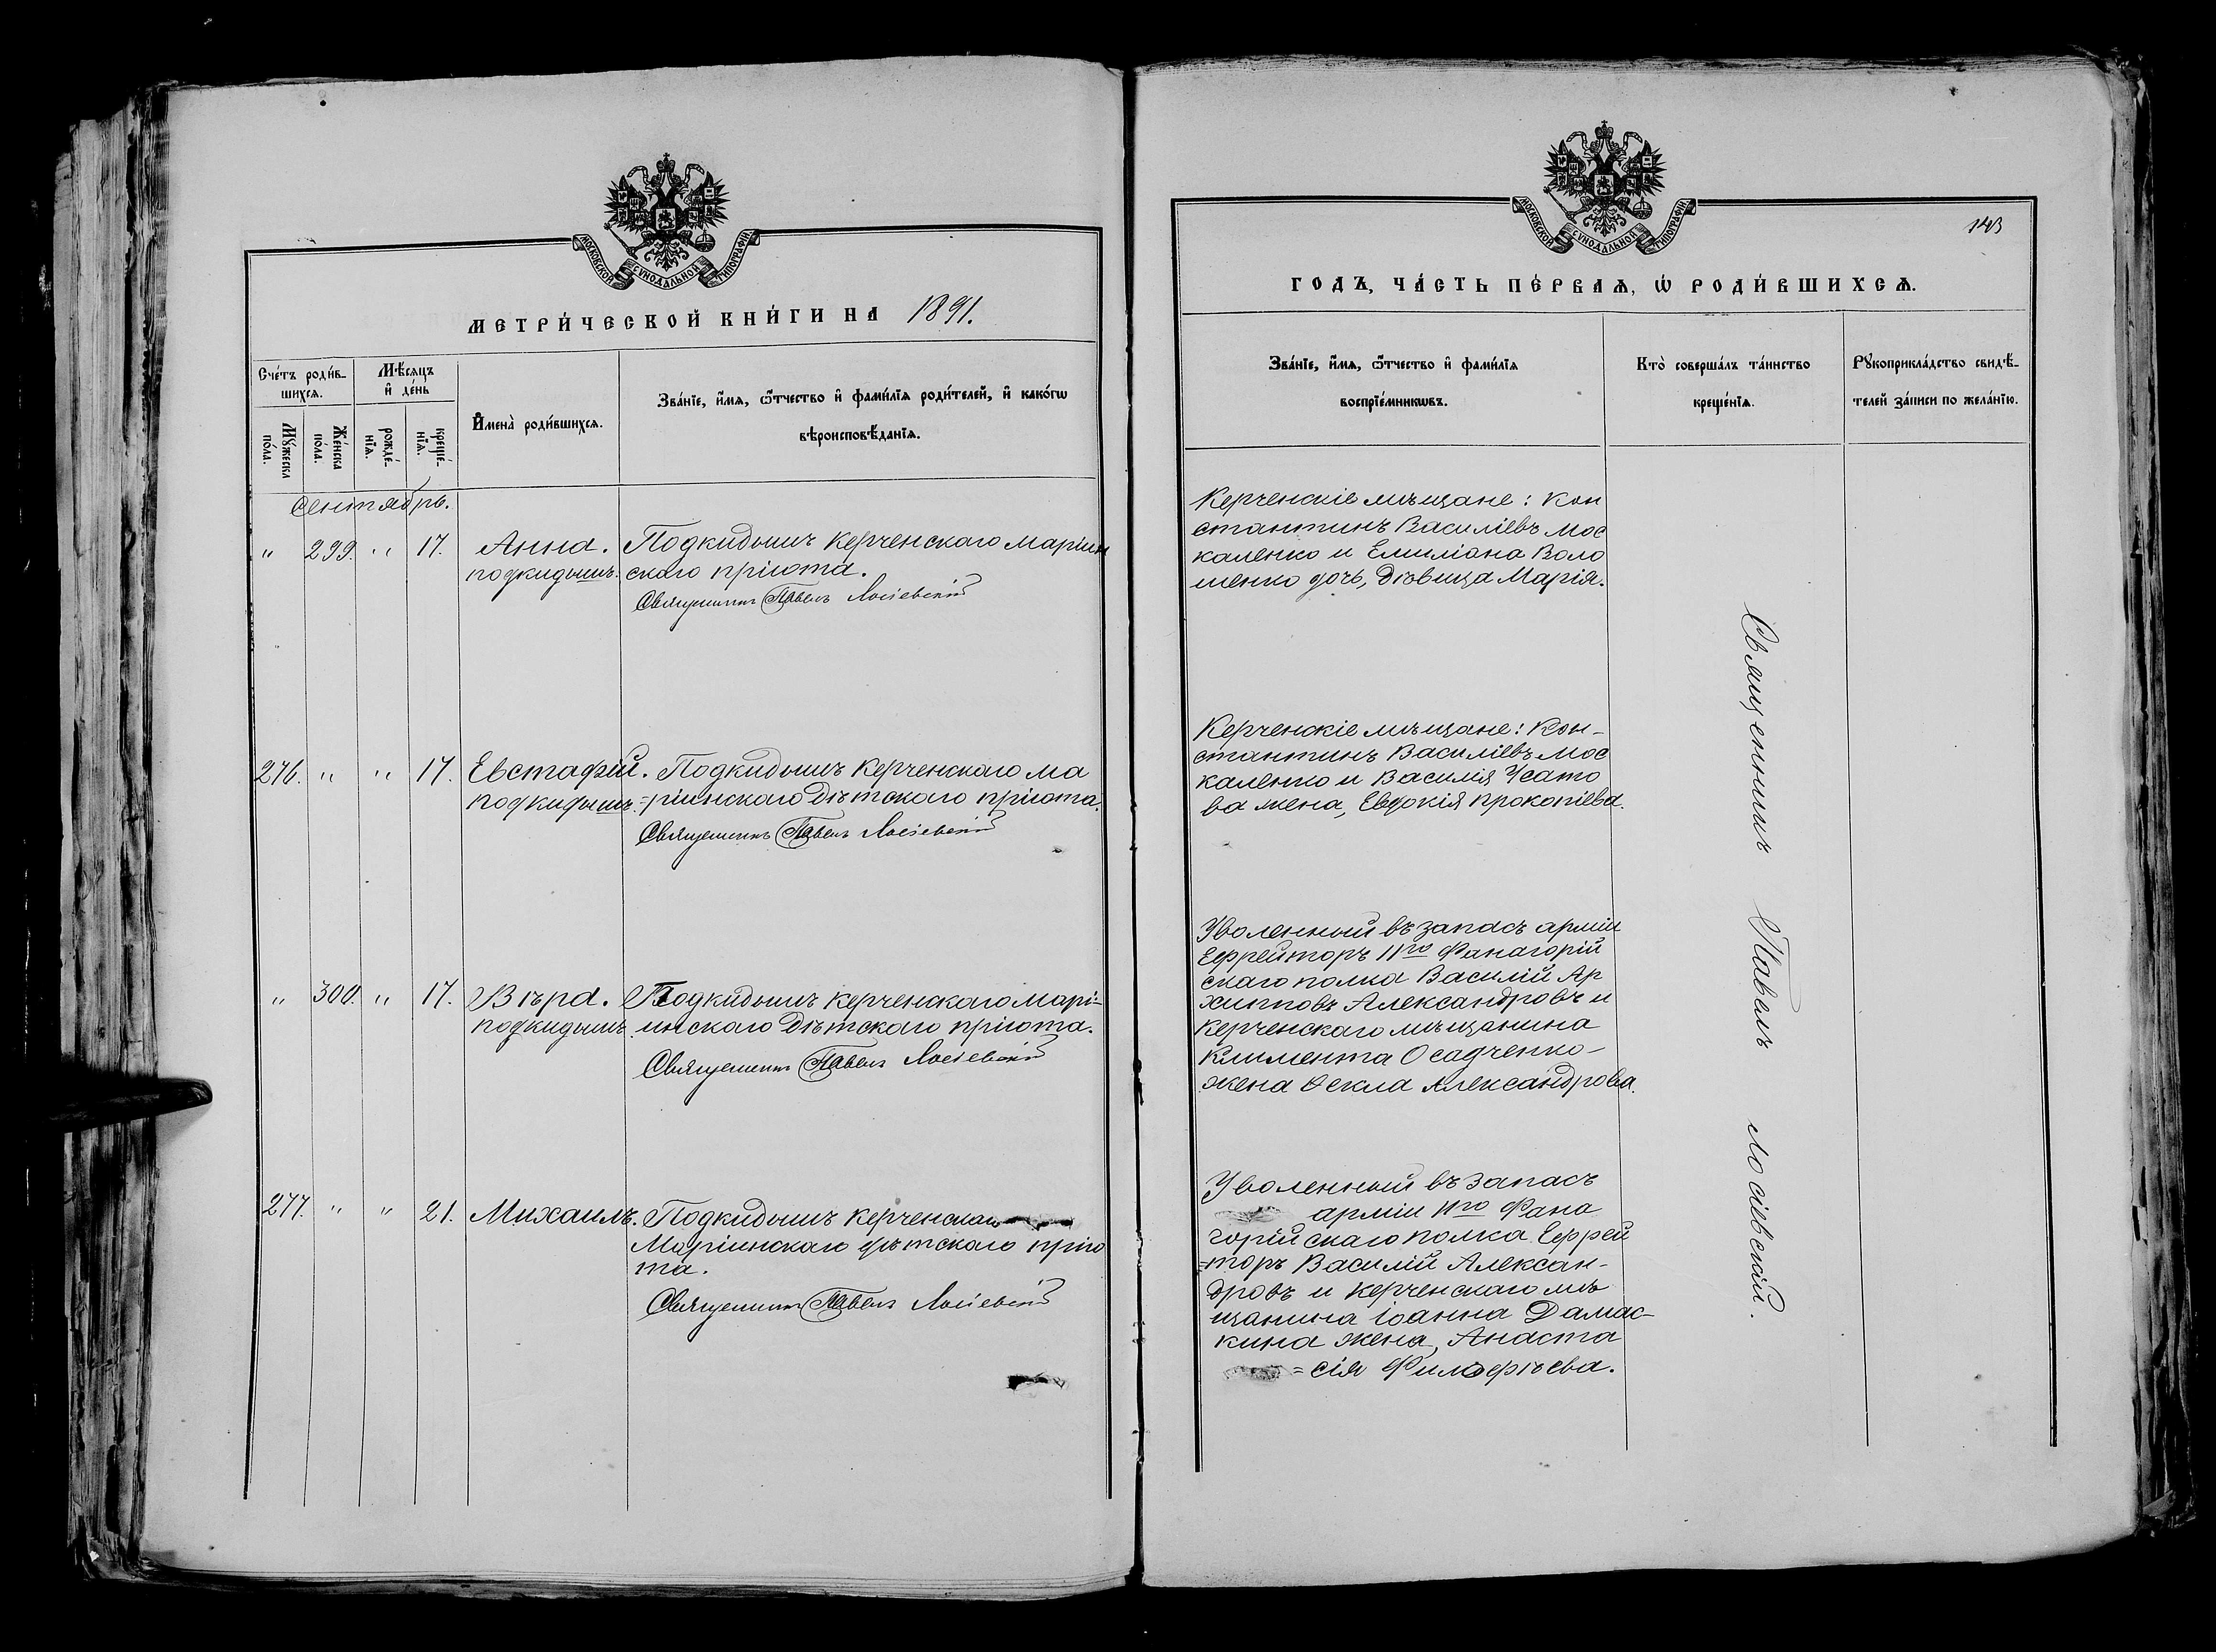 МОСКОВСКОЙ СѴНОДАЛЬНОЙ ТИПОГРАФІИ
МЕТРИ́ЧЕСКОЙ КНИ́ГИ НА 1891.
Сче́тъ роди́в-
шихсѧ.
Мѣ́сѧцъ
и҆ де́нь
Мꙋ́жеска
по́ла.
Же́нска
по́ла.
рожде́-
нїѧ.
креще́-
нїѧ.
И҆мена̀ роди́вшихсѧ.
Зва́нїе, и҆́мѧ, ѻ҆́тчество и҆ фами́лїѧ роди́телей, и҆ како́гѡ
вѣроисповѣ́данїѧ.
Сентябрь.
" 299. " 17. Анна. Подкидышъ Керченскаго Маріин
подкидышъ. скаго пріюта.
Священникъ Павелъ Лосіевскій
276. " " 17. Евстафій. Подкидышъ Керченскаго Ма
подкидышъ. =ріинскаго Дѣтскаго пріюта.
Священникъ Павелъ Лосіевскій
" 300. " 17. Вѣра. Подкидышъ Керченскаго Марі-
подкидышъ. инскаго Дѣтскаго пріюта.
Священникъ Павелъ Лосіевскій
277. " " 21. Михаилъ. Подкидышъ Керченскаго
Маріинскаго дѣтскаго прію
та.
Священникъ Павелъ Лосіевскій
МОСКОВСКОЙ СѴНОДАЛЬНОЙ ТИПОГРАФІИ
143
ГОДЪ, ЧА́СТЬ ПЕ́РВАѦ, Ѽ РОДИ́ВШИХСѦ.
Зва́нїе, и҆́мѧ, ѻ҆́тчество и҆ фами́лїѧ
воспрїе́мникѡвъ.
Кто̀ соверша́лъ та́инство
креще́нїѧ.
Рꙋкоприкла́дство свидѣ́-
телей за́писи по жела́нїю.
Керченскіе мѣщане: Кон
стантинъ Василіевъ Мос
каленко и Емиліана Воло
шенко дочь, дѣвица Марія.
Керченскіе мѣщане: Кон-
стантинъ Василіевъ Мос
каленко и Василія Усато
ва жена, Евдокія Прокопіева.
Уволенный въ запасъ арміи
Ефрейторъ 11го Фанагорій
скаго полка Василій Ар
хипповъ Александровъ и
Керченскаго мѣщанина
Климента Осадченко-
жена Ѳекла Александрова.
Уволенный въ запасъ
арміи 11го Фана
горійскаго полка Ефрей
=торъ Василій Алексан-
дровъ и Керченскаго мѣ
щанина Іоанна Дамас-
кина жена, Анаста
=сія Филофѣева.
Священникъ Павелъ Лосіевскій.